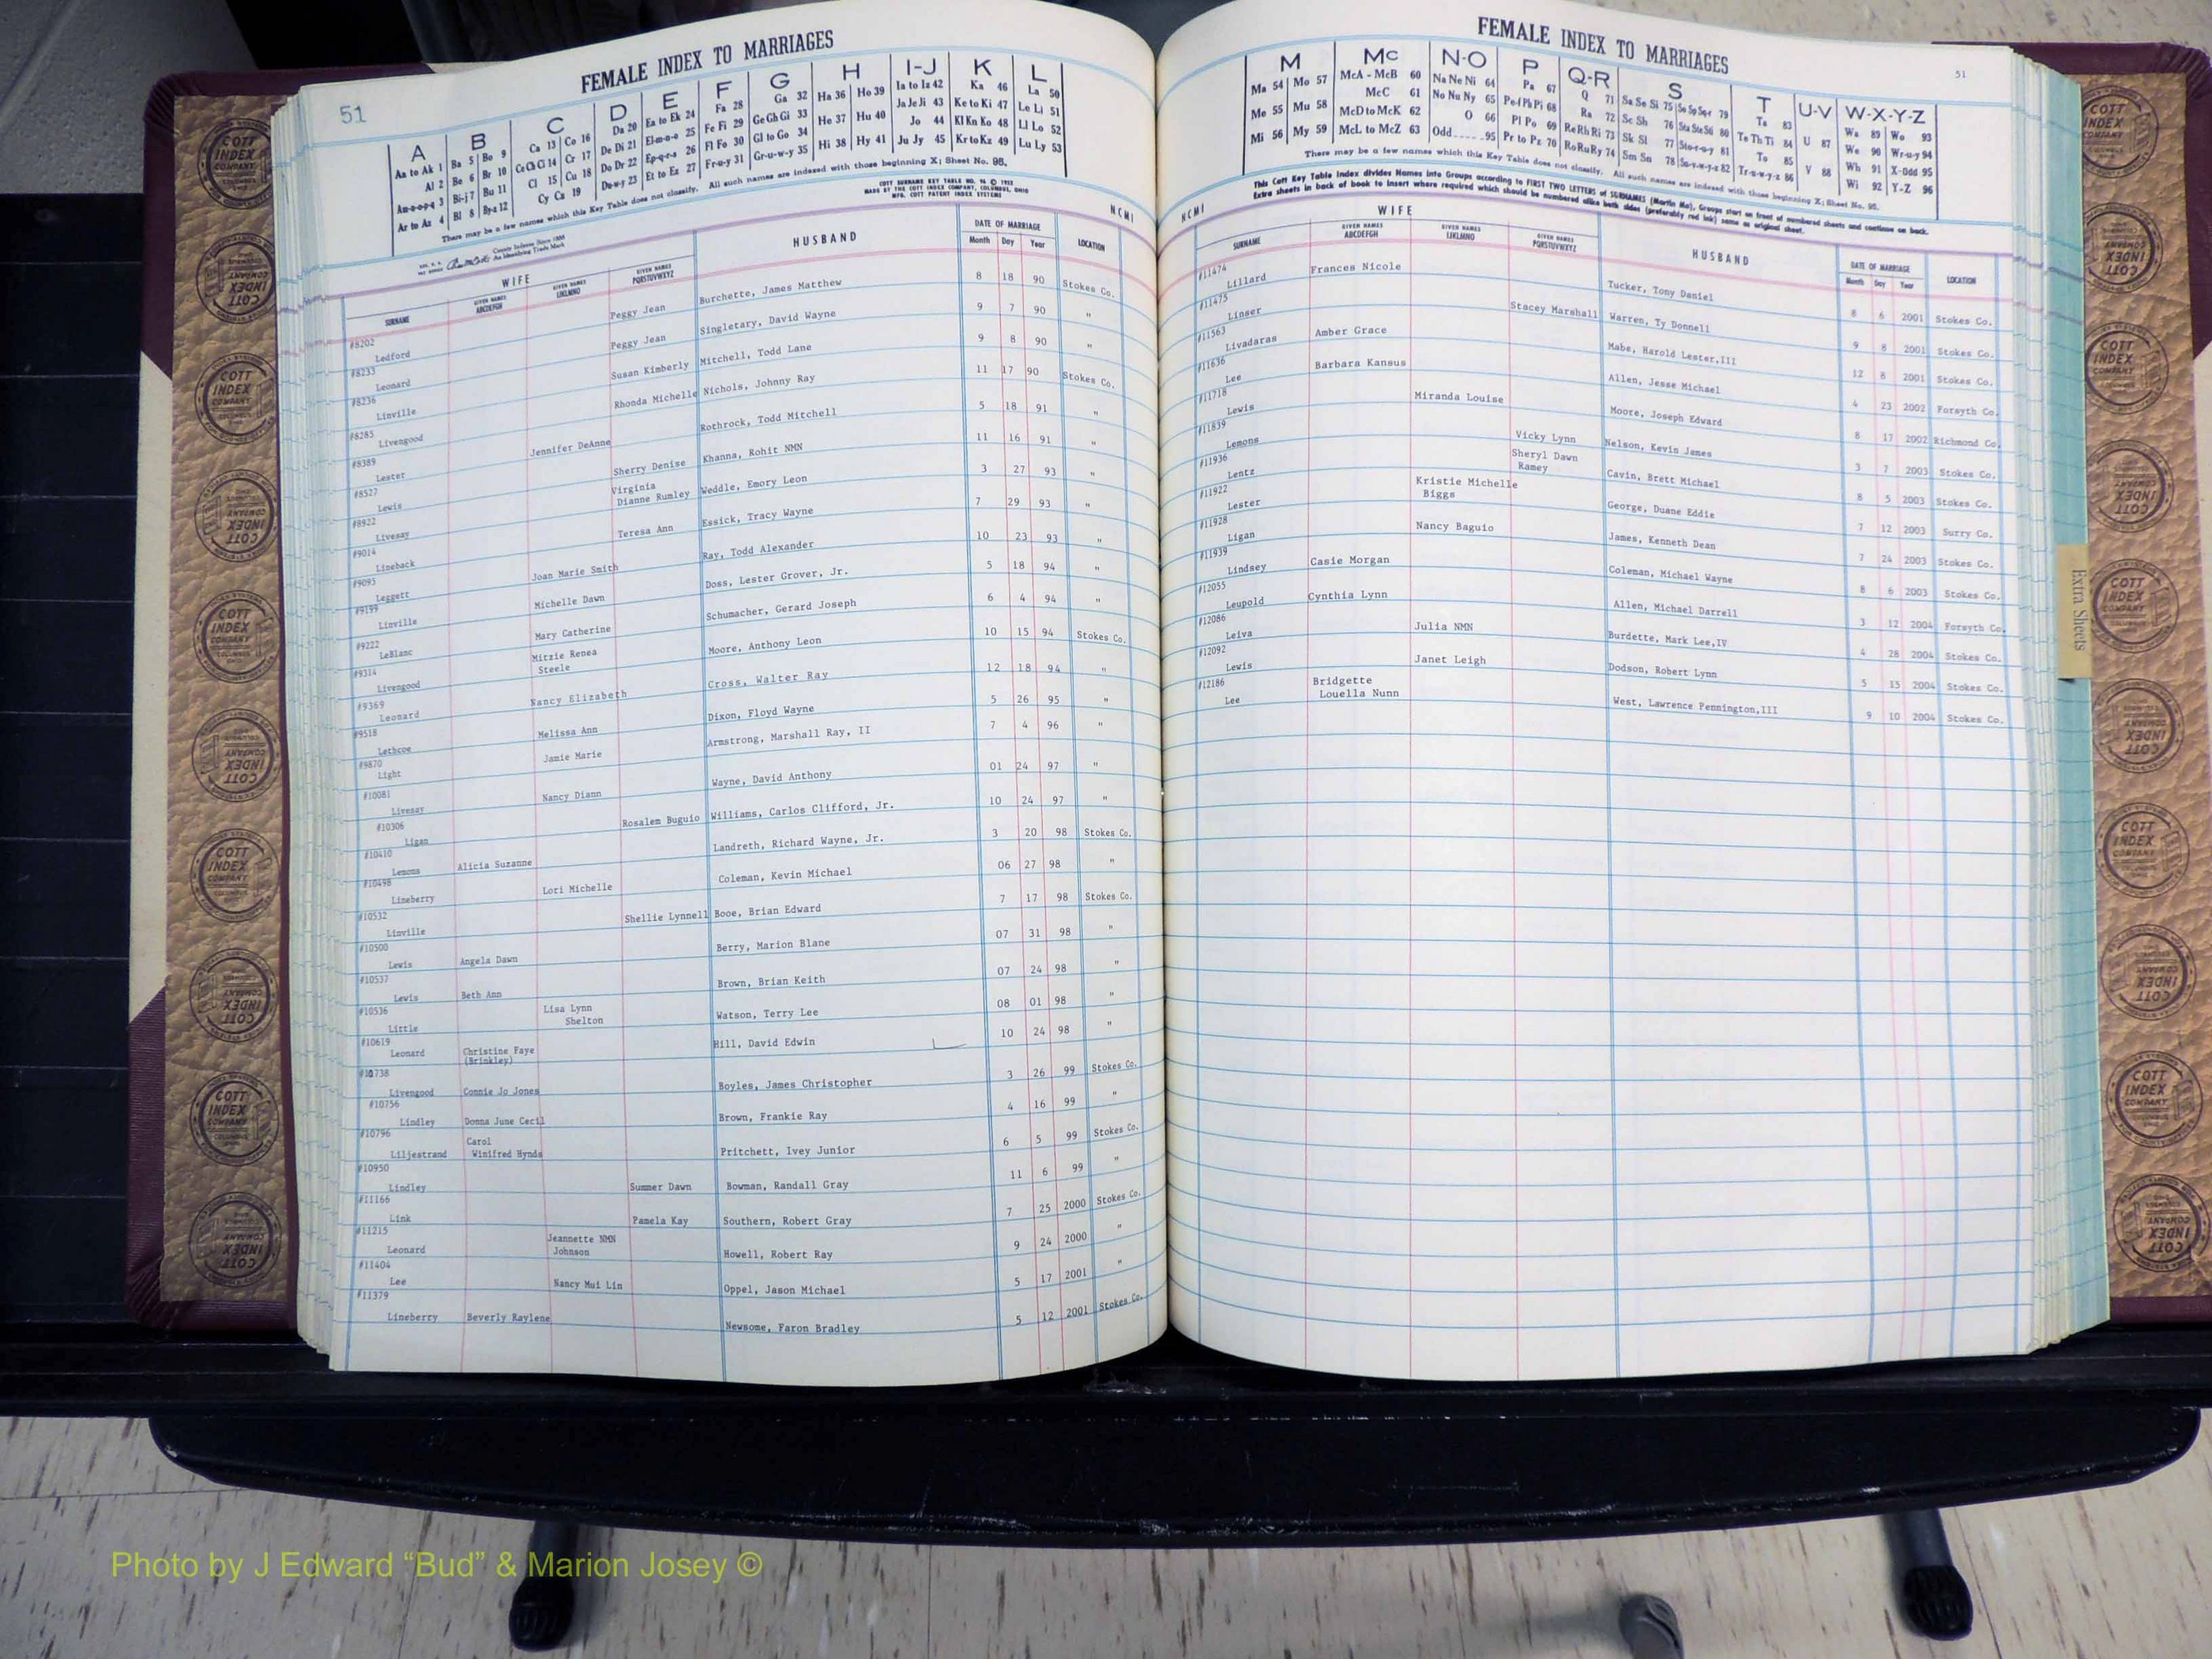 51
FEMALE INDEX TO MARRIAGES
A B C D E F G H I-J K L
Aa to Ak 1 Ba 5 Be 9 Ca 13 Co 16 Da 20 Ea to Ek 24 Fa 28 Ga 32 Ha 36 Ho 39 Ia to Iz 42 Ka 46 La 50
Al 2 Be 6 Br 10 Ce Ch Ci 14 Cr 17 De Di 21 El-m-n-o 25 Fe Fi 29 Ge Gh Gi 33 He 37 Hu 40 Ja Je Ji 43 Ke to Ki 47 Le Li 51
Am-n-o-p-q 3 Bi-j 7 Bu 11 Cl 15 Cu 18 Do Dr 22 Ep-q-r-s 26 Fl Fo 30 Gl to Go 34 Hi 38 Hy 41 Jo 44 Kl Kn Ko 48 Ll Lo 52
Ar to Az 4 Bl 8 By-z 12 Cy Cz 19 Du-w-y 23 Et to Ez 27 Fr-u-y 31 Gr-u-w-y 35 Ju Jy 45 Kr to Kz 49 Lu Ly 53
There may be a few names which this Key Table does not classify. All such names are indexed with those beginning X; Sheet No. 95.
COTT SURNAME KEY TABLE NO. 96 © 1952
MADE BY THE COTT INDEX COMPANY, COLUMBUS, OHIO
MFG. COTT PATENT INDEX SYSTEMS
County Indexes Since 1888
An Identifying Trade Mark
NCMI
WIFE HUSBAND DATE OF MARRIAGE LOCATION
SURNAME GIVEN NAMES ABCDEFGH GIVEN NAMES IJKLMNO GIVEN NAMES PQRSTUVWXYZ Month Day Year
#8202 Ledford Peggy Jean Burchette, James Matthew 8 18 90 Stokes Co.
#8233 Leonard Peggy Jean Singletary, David Wayne 9 7 90 "
#8236 Linville Susan Kimberly Mitchell, Todd Lane 9 8 90 "
#8285 Livengood Rhonda Michelle Nichols, Johnny Ray 11 17 90 Stokes Co.
#8389 Lester Jennifer DeAnne Rothrock, Todd Mitchell 5 18 91 "
#8527 Lewis Sherry Denise Khanna, Rohit NMN 11 16 91 "
#8922 Livesay Virginia Dianne Rumley Weddle, Emory Leon 3 27 93 "
#9014 Lineback Teresa Ann Essick, Tracy Wayne 7 29 93 "
#9095 Leggett Joan Marie Smith Ray, Todd Alexander 10 23 93 "
#9199 Linville Michelle Dawn Doss, Lester Grover, Jr. 5 18 94 "
#9222 LeBlanc Mary Catherine Schumacher, Gerard Joseph 6 4 94 "
#9314 Livengood Mitzie Renea Steele Moore, Anthony Leon 10 15 94 Stokes Co.
#9369 Leonard Nancy Elizabeth Cross, Walter Ray 12 18 94 "
#9518 Lethcoe Melissa Ann Dixon, Floyd Wayne 5 26 95 "
#9870 Light Jamie Marie Armstrong, Marshall Ray, II 7 4 96 "
#10081 Livesay Nancy Diann Wayne, David Anthony 01 24 97 "
#10306 Ligan Rosalem Buguio Williams, Carlos Clifford, Jr. 10 24 97 "
#10410 Lemons Alicia Suzanne Landreth, Richard Wayne, Jr. 3 20 98 Stokes Co.
#10498 Lineberry Lori Michelle Coleman, Kevin Michael 06 27 98 "
#10532 Linville Shellie Lynnell Booe, Brian Edward 7 17 98 Stokes Co.
#10500 Lewis Angela Dawn Berry, Marion Blane 07 31 98 "
#10537 Lewis Beth Ann Brown, Brian Keith 07 24 98 "
#10536 Little Lisa Lynn Shelton Watson, Terry Lee 08 01 98 "
#10619 Leonard Christine Faye (Brinkley) Hill, David Edwin 10 24 98 "
#10738 Livengood Connie Jo Jones Boyles, James Christopher 3 26 99 Stokes Co.
#10756 Lindley Donna June Cecil Brown, Frankie Ray 4 16 99 "
#10796 Liljestrand Carol Winifred Hynds Pritchett, Ivey Junior 6 5 99 Stokes Co.
#10950 Lindley Summer Dawn Bowman, Randall Gray 11 6 99 "
#11166 Link Pamela Kay Southern, Robert Gray 7 25 2000 Stokes Co.
#11215 Leonard Jeannette NMN Johnson Howell, Robert Ray 9 24 2000 "
#11404 Lee Nancy Mui Lin Oppel, Jason Michael 5 17 2001 "
#11379 Lineberry Beverly Raylene Newsome, Faron Bradley 5 12 2001 Stokes Co.
FEMALE INDEX TO MARRIAGES
51
M Mc N-O P Q-R S T U-V W-X-Y-Z
Ma 54 Mo 57 McA - McB 60 Na Ne Ni 64 Pa 67 Q 71 Sa Se Si 75 So Sp Sq-r 79 Ta 83 U 87 Wa 89 Wo 93
Me 55 Mu 58 McC 61 No Nu Ny 65 Pe-f Ph Pi 68 Ra 72 Sc Sh 76 Sta Ste Sti 80 Te Th Ti 84 V 88 We 90 Wr-u-y 94
Mi 56 My 59 McD to McK 62 O 66 Pl Po 69 Re Rh Ri 73 Sk Sl 77 Sto-r-u-y 81 To 85 Wh 91 X-Odd 95
McL to McZ 63 Odd 95 Pr to Pz 70 Ro Ru Ry 74 Sm Sn 78 Su-v-w-y-z 82 Tr-u-w-y-z 86 Wi 92 Y-Z 96
There may be a few names which this Key Table does not classify. All such names are indexed with those beginning X; Sheet No. 95.
This Cott Key Table Index divides Names into Groups according to FIRST TWO LETTERS of SURNAMES (Martin Ma), Groups start on front of numbered sheets and continue on back.
Extra sheets in back of book to insert where required which should be numbered alike both sides (preferably red ink) same as original sheet.
NCMI
WIFE HUSBAND DATE OF MARRIAGE LOCATION
SURNAME GIVEN NAMES ABCDEFGH GIVEN NAMES IJKLMNO GIVEN NAMES PQRSTUVWXYZ Month Day Year
#11474 Lillard Frances Nicole Tucker, Tony Daniel 8 6 2001 Stokes Co.
#11475 Linser Stacey Marshall Warren, Ty Donnell 9 8 2001 Stokes Co.
#11563 Livadaras Amber Grace Mabe, Harold Lester,III 12 8 2001 Stokes Co.
#11636 Lee Barbara Kansus Allen, Jesse Michael 4 23 2002 Forsyth Co.
#11718 Lewis Miranda Louise Moore, Joseph Edward 8 17 2002 Richmond Co.
#11839 Lemons Vicky Lynn Nelson, Kevin James 3 7 2003 Stokes Co.
#11936 Lentz Sheryl Dawn Ramey Cavin, Brett Michael 8 5 2003 Stokes Co.
#11922 Lester Kristie Michelle Biggs George, Duane Eddie 7 12 2003 Surry Co.
#11928 Ligan Nancy Baguio James, Kenneth Dean 7 24 2003 Stokes Co.
#11939 Lindsey Casie Morgan Coleman, Michael Wayne 8 6 2003 Stokes Co.
#12055 Leupold Cynthia Lynn Allen, Michael Darrell 3 12 2004 Forsyth Co.
#12086 Leiva Julia NMN Burdette, Mark Lee,IV 4 28 2004 Stokes Co.
#12092 Lewis Janet Leigh Dodson, Robert Lynn 5 15 2004 Stokes Co.
#12186 Lee Bridgette Louella Nunn West, Lawrence Pennington,III 9 10 2004 Stokes Co.
Extra Sheets
COTT INDEX COMPANY
Photo by J Edward “Bud” & Marion Josey ©